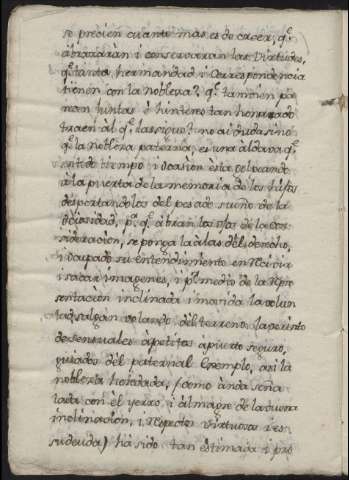 se precien cuanto mas es de creer, q.e
abrazaràn i conservaran las Virtudes,
q.e tanta hermandad i Correspondencia
tienen con la nobleza? q.e tambien pa
recen juntas è hinchen tan honrrado
traen al q.e las sigue? no ai duda sino
q.e la nobleza paterna, es una aldava q.e
en todo tiempo i ocasion està tocando
à la puerta de la memoria de los hijos
despertandolos del pesado sueño de la
ociosidad, p.a q.e abran los ojos de la con
sideracion, se ponga la alas del derecho,
i ocupado su entendimiento en recivir
i sacar imagenes, i p.r medio de la repre
sentacion inclinada i movida la volun
tad, salgan volando del terreno laberinto
de sensuales apetitos à puerto seguro,
guiados del paternal exemplo, asi la
nobleza heredada, (como anda seña
lada con el yerro, i almagre de la buena
inclinacion, i respectos virtuosos i es
su deuda) hà sido tan estimada i pre